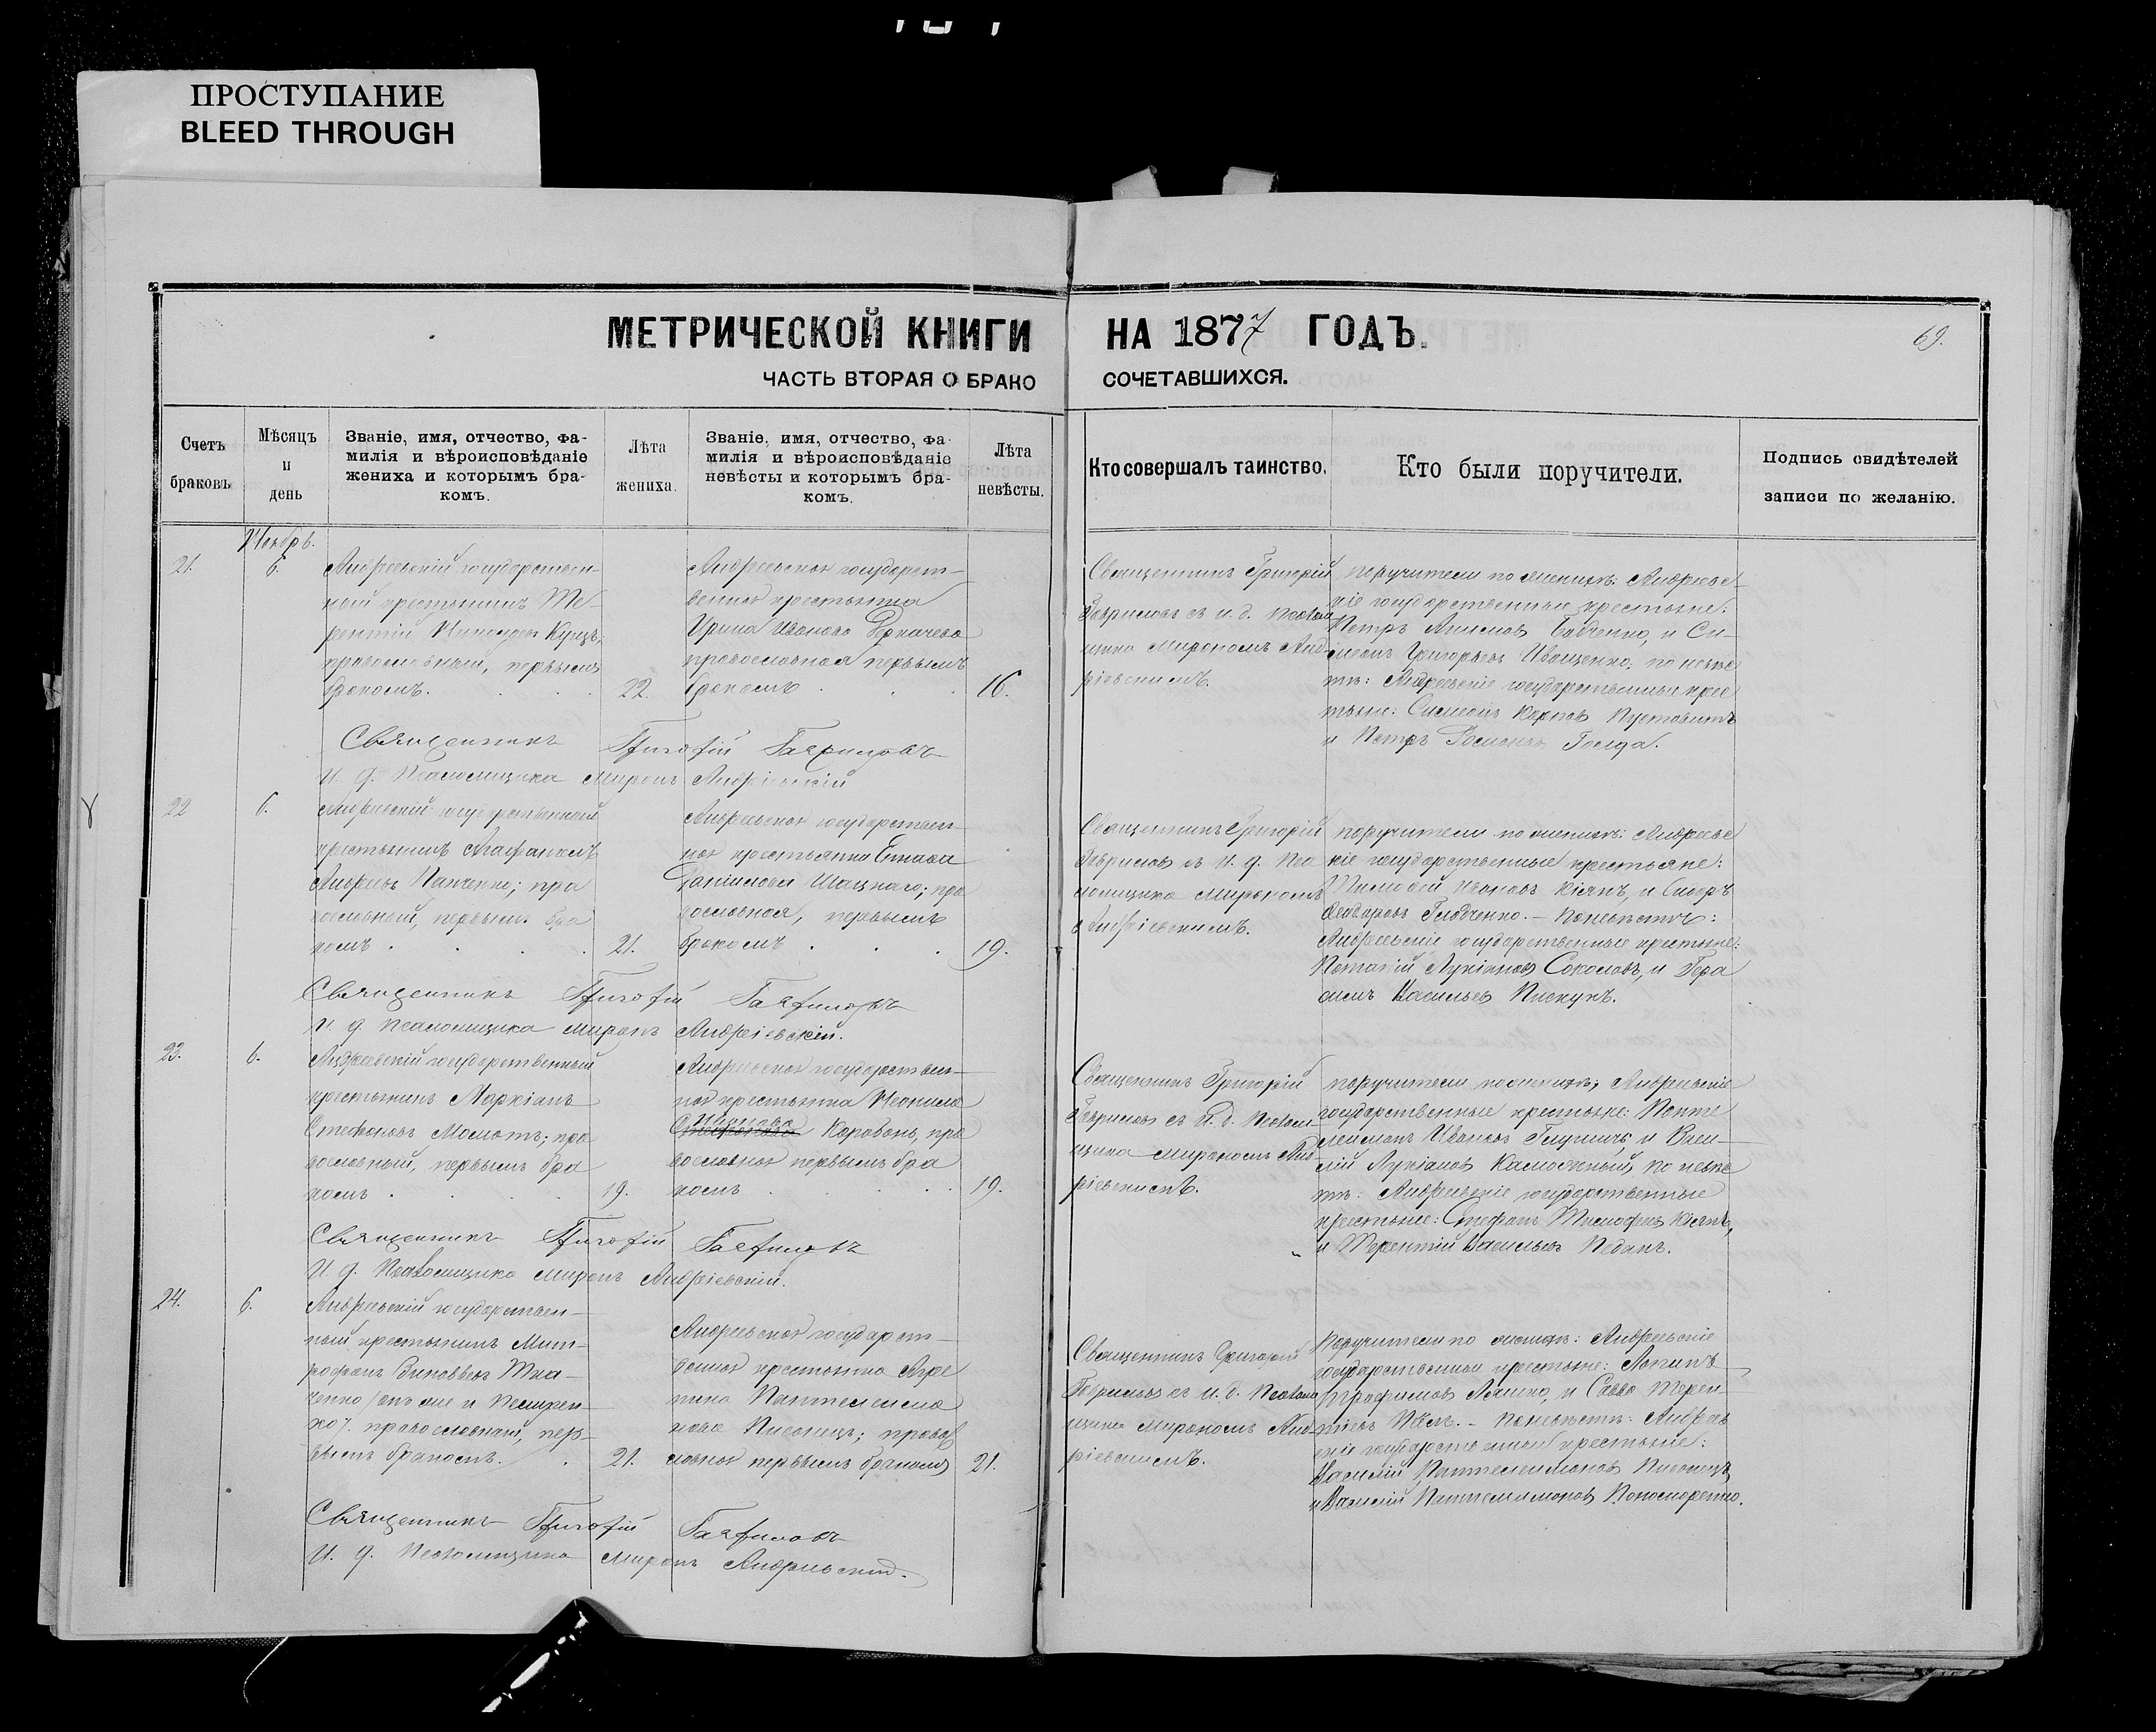 ПРОСТУПАНИЕ
BLEED THROUGH
МЕТРИЧЕСКОЙ КНИГИ НА 1877 ГОДЪ.
69.
ЧАСТЬ ВТОРАЯ О БРАКОСОЧЕТАВШИХСЯ.
Счетъ браковъ.
Мѣсяцъ и день
Званіе, имя, отчество, фа-
милія и вѣроисповѣданіе
жениха и которымъ бра-
комъ.
Лѣта жениха.
Званіе, имя, отчество, фа-
милія и вѣроисповѣданіе
невѣсты и которымъ бра-
комъ.
Лѣта невѣсты.
Кто совершалъ таинство.
Кто были поручители.
Подпись свидѣтелей
записи по желанію.
Ноябрь.
21.
6.
Андреевскій государствен-
ный крестьянинъ Те-
рентій
православный, первымъ
бракомъ.
22.
Андреевская государст-
венная крестьянка
Ирина Иванова Деркачева
православная первымъ
бракомъ
16.
Священникъ Григорій
Гавриловъ съ и. д. псалом-
щика Мирономъ Анд-
ріевскимъ.
поручители по женихѣ: Андреевс
кіе государственные крестьяне:
Петръ Бабченко, и Си-
меонъ Григорьевъ Иващенко; по невѣс
тѣ: Андреевскіе государственные крес
тьяне: Симеонъ Карповъ Пустовитъ
и Петръ
Священникъ Григорій Гавриловъ
И. д. Псаломщика Миронъ Андріевскій
22
6.
Андреевскій государственный
крестьянинъ Агафангелъ
Андреевъ Панченко; пра
вославный, первымъ бра
комъ
21.
Андреевская государствен-
ная крестьянка
Даніилова Шацкаго; пра
вославная, первымъ
бракомъ
19.
Священникъ Григорій
Гавриловъ съ И. д. Пса
ломщика Мирономъ
Андріевскимъ.
поручители по женихѣ: Андреевс
кіе государственные крестьяне:
Тимофей Ивановъ Кіянъ, и Сидоръ
Феодоровъ - По невѣстѣ:
Андреевскіе государственные крестьяне:
Потапій Лукіановъ Соколовъ, и Гера
симъ Васильевъ Пискунъ.
Священникъ Григорій Гавриловъ
И. д. Псаломщика Миронъ Андріевскій.
23.
6.
Андреевскій государственный
крестьянинъ Маркіанъ
Стефановъ Момотъ; пра
вославный, первымъ бра
комъ
19.
Андреевская государствен-
ная крестьянка Неонила
Стефанова Караванъ, пра
вославная первымъ бра
комъ
19.
Священникъ Григорій
Гавриловъ съ И. д. псалом-
щика Мирономъ Анд-
ріевскимъ.
поручители по женихѣ; Андреевскіе
государственные крестьяне: Панте
леимонъ Ивановъ и Васи-
лій Лукіановъ по невѣс
тѣ: Андреевскіе государственные
крестьяне: Стефанъ Тимофеевъ Кіянъ,
и Терентій Васильевъ Педанъ.
Священникъ Григорій Гавриловъ
И. д. Псаломщика Миронъ Андріевскій.
24.
6.
Андреевскій государствен-
ный крестьянинъ Мит-
рофанъ Зиновьевъ Тка-
ченко
православный, пер-
вымъ бракомъ.
21.
Андреевская государст-
венная крестьянка
Пантелеимо
нова Писонецъ; правос
лавная первымъ бракомъ
21.
Священникъ Григорій
Гавриловъ съ И. д. Псалом
щика Мирономъ Анд-
ріевскимъ.
Поручители по женихѣ: Андреевскіе
государственные крестьяне:
Трофимовъ Ляшко, и Савва Терен-
тіевъ - По невѣстѣ: Андреев
скіе государственные крестьяне:
Василій Пантелеимоновъ Писонецъ,
и Василій Пантелимоновъ
Священникъ Григорій Гавриловъ
И. д. Псаломщика Миронъ Андріевскій.